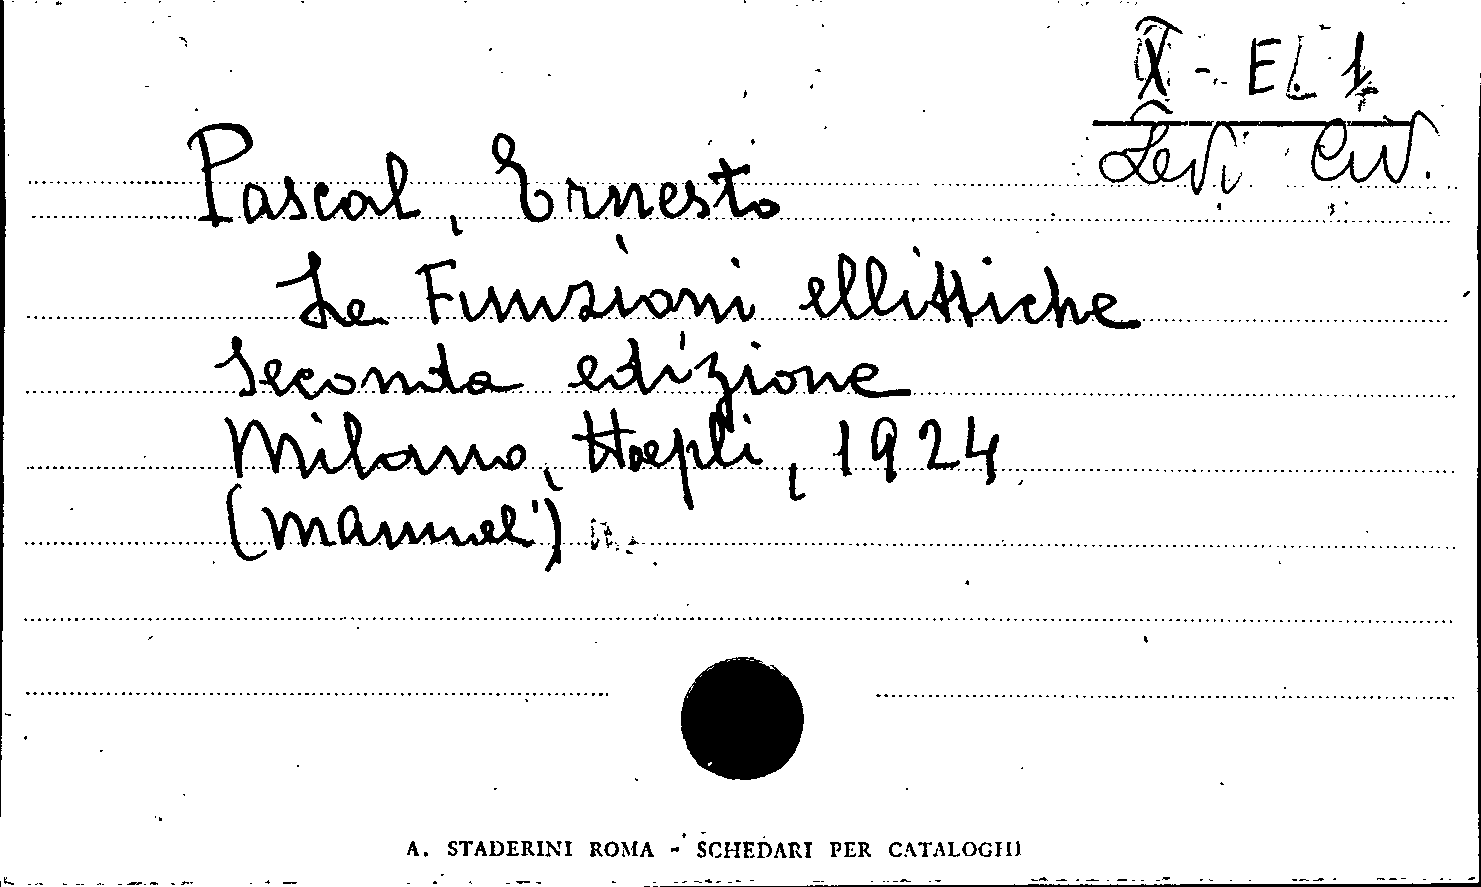 X - EL 1
Levi Civ.
Pascal, Ernesto
Le Funzioni ellittiche
Seconda edizione
Milano, Hoepli, 1924
(manuel')
A. STADERINI ROMA - SCHEDARI PER CATALOGHI